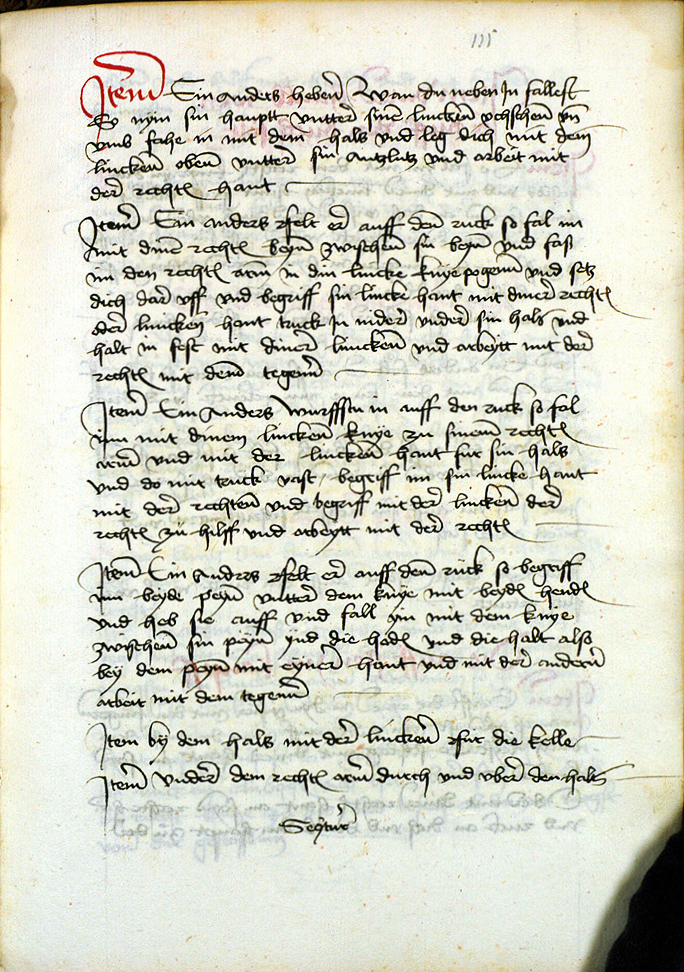 111
Item Ein anders heben Wan du neben In fallest
So nym sin hauptt vntter sine lincken vchschen vn
vmb fahe in mit dem hals vnd leg dich mit dem
lincken oben vntter sin Antzlutz vnd arbeit mit
der rechten hant
Item Ein anders felt er auff den ruck so fal im
mit dine rechten beyn zwischen sin beyn vnd fass
im den rechten arm in din lincke knyepogenn vnd setz
dich dar vff vnd begriff sin lincke hant mit diner rechten
oder lincken hant truck In nider vnder sin hals vnd
halt in fest mit diner lincken vnd arbeytt mit der
rechten mit dem tegenn
Item Ein Anders Wurffstu in auff den ruck so fal
im mit dinem lincken knye zu sinem rechten
arm vnd mit der lincken hant fur sin hals
vnd do mit truck vast / begriff im sin lincke hant
mit der rechten vnd begriff mit der lincken der
rechten zu hilff vnd arbeytt mit der rechten
Item Ein anders felt er auff den ruck so begriff
im beyde peyn vntter dem knye mit beyden henden
vnd heb sie auff vnd fall im mit dem knye
zwischen sin peyn vnd die hoden vnd die halt alss
bey dem peyn mit eyner hant vnd mit der andern
arbeit mit dem tegenn
Item by dem hals mit der lincken fur die kelle
Item vnder dem rechten arm durch vnd vber den hals
Sequitur